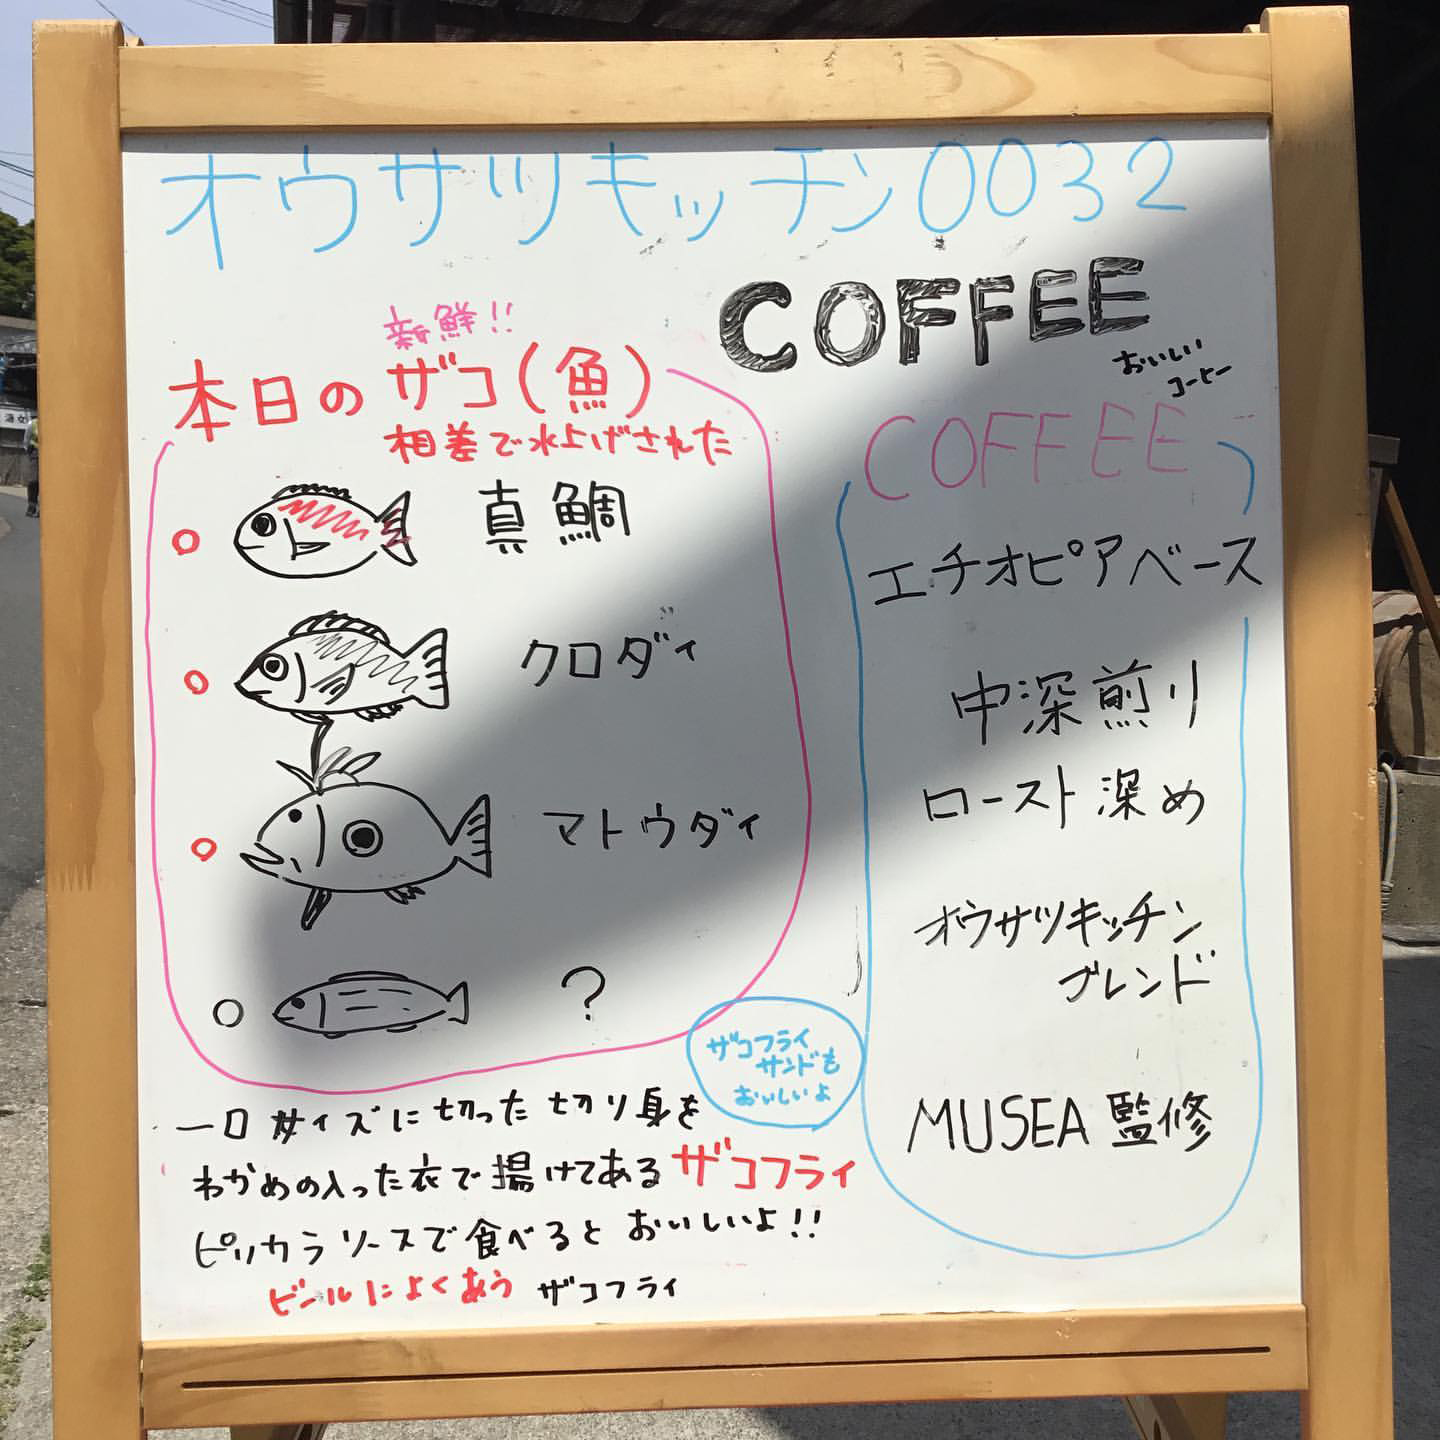 オウサツキッチン0032
COFFEE
おいしい
コーヒー
新鮮!!
本日のザコ(魚)
相差で水上げされた
真鯛
クロダイ
マトウダイ
?
COFFEE
エチオピアベース
中深煎り
ロースト深め
オウサツキッチン
ブレンド
MUSEA 監修
ザコフライ
サンドも
おいしいよ
一口サイズに切った切り身を
わかめの入った衣で揚けてあるザコフライ
ピリカラソースで食べるとおいしいよ!!
ビールによくあう ザコフライ